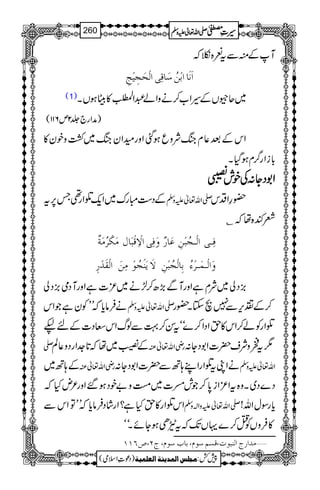 سیرتِ مصطفیٰ صلی اللہ تعالیٰ علیہ وسلم
260
آپ کے منہ سے یہ نعرہ نکلا کہ
اَنَا ابْنُ سَاقِى الْحَجِيْجِ
میں حاجیوں کے سیراب کرنے والے عبدالمطلب کا بیٹا ہوں۔(1)
(مدارج جلد۲ ص۱۱۶)
اس کے بعد عام جنگ شروع ہوگئی اور میدان جنگ میں کشت و خون کا
بازار گرم ہوگیا۔
ابودجانہ کی خوش نصیبی
حضور اقدس صلی اللہ تعالیٰ علیہ وسلم کے دست مبارک میں ایک تلوار تھی جس پر یہ
شعر کندہ تھا کہ ؎
فِى الْجُبْنِ عَارٌ وَفِى الْاِقْبَالِ مَكْرُمَةٌ
وَالْمَرْءُ بِالْجُبْنِ لَا يَنْجُوْ مِنَ الْقَدَرِ
بزدلی میں شرم ہے اور آگے بڑھ کر لڑنے میں عزت ہے اور آدمی بزدلی
کر کے تقدیر سے نہیں بچ سکتا۔ حضور صلی اللہ تعالیٰ علیہ وسلم نے فرمایا کہ ’’کون ہے جو اس
تلوار کو لے کر اس کا حق ادا کرے‘‘ یہ سن کر بہت سے لوگ اس سعادت کے لئے لپکے
مگر یہ فخر و شرف حضرت ابودجانہ رضی اللہ تعالیٰ عنہ کے نصیب میں تھا کہ تاجدار دو عالم صلی
اللہ تعالیٰ علیہ وسلم نے اپنی یہ تلوار اپنے ہاتھ سے حضرت ابودجانہ رضی اللہ تعالیٰ عنہ کے ہاتھ میں
دے دی۔ وہ یہ اعزاز پا کر جوش مسرت میں مست و بے خود ہوگئے اور عرض کیا کہ
یارسول اللہ! صلی اللہ تعالیٰ علیہ والہ وسلم اس تلوار کا حق کیا ہے؟ ارشاد فرمایا کہ ’’تو اس سے
کافروں کو قتل کرے یہاں تک کہ یہ ٹیڑھی ہو جائے۔‘‘
1 ......مدارج النبوت، قسم سوم، باب سوم، ج۲، ص۱۱۶
پیش کش: مجلس المدینۃ العلمیۃ (دعوتِ اسلامی)